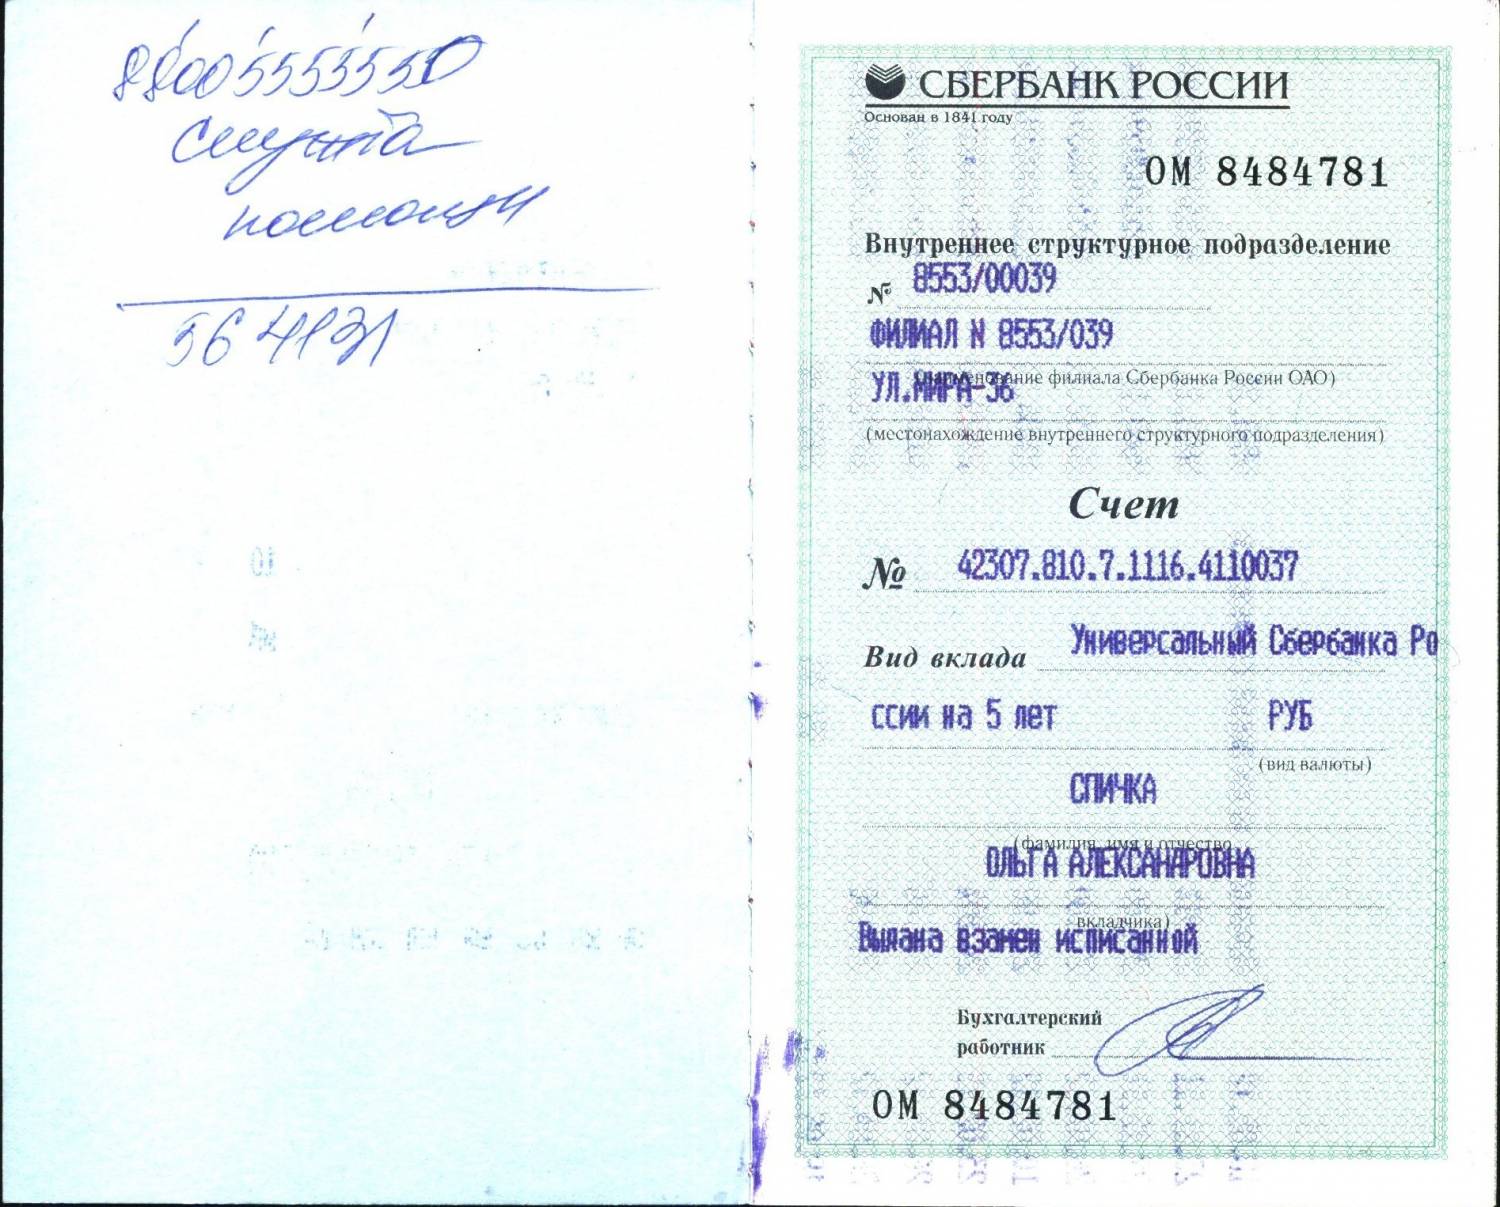 88005555550
Служба
помощи
564131
СБЕРБАНК РОССИИ
Основан в 1841 году
ОМ 8484781
Внутреннее структурное подразделение
№ 8553/00039
ФИЛИАЛ N 8553/039
(наименование филиала Сбербанка России ОАО)
УЛ.МИРА-36
(местонахождение внутреннего структурного подразделения)
Счет
№ 42307.810.7.1116.4110037
Вид вклада Универсальный Сбербанка Ро
ссии на 5 лет РУБ
(вид валюты)
СПИЧКА
(фамилия, имя и отчество
ОЛЬГА АЛЕКСАНДРОВНА
вкладчика)
Выдана взамен исписанной
Бухгалтерский
работник
ОМ 8484781